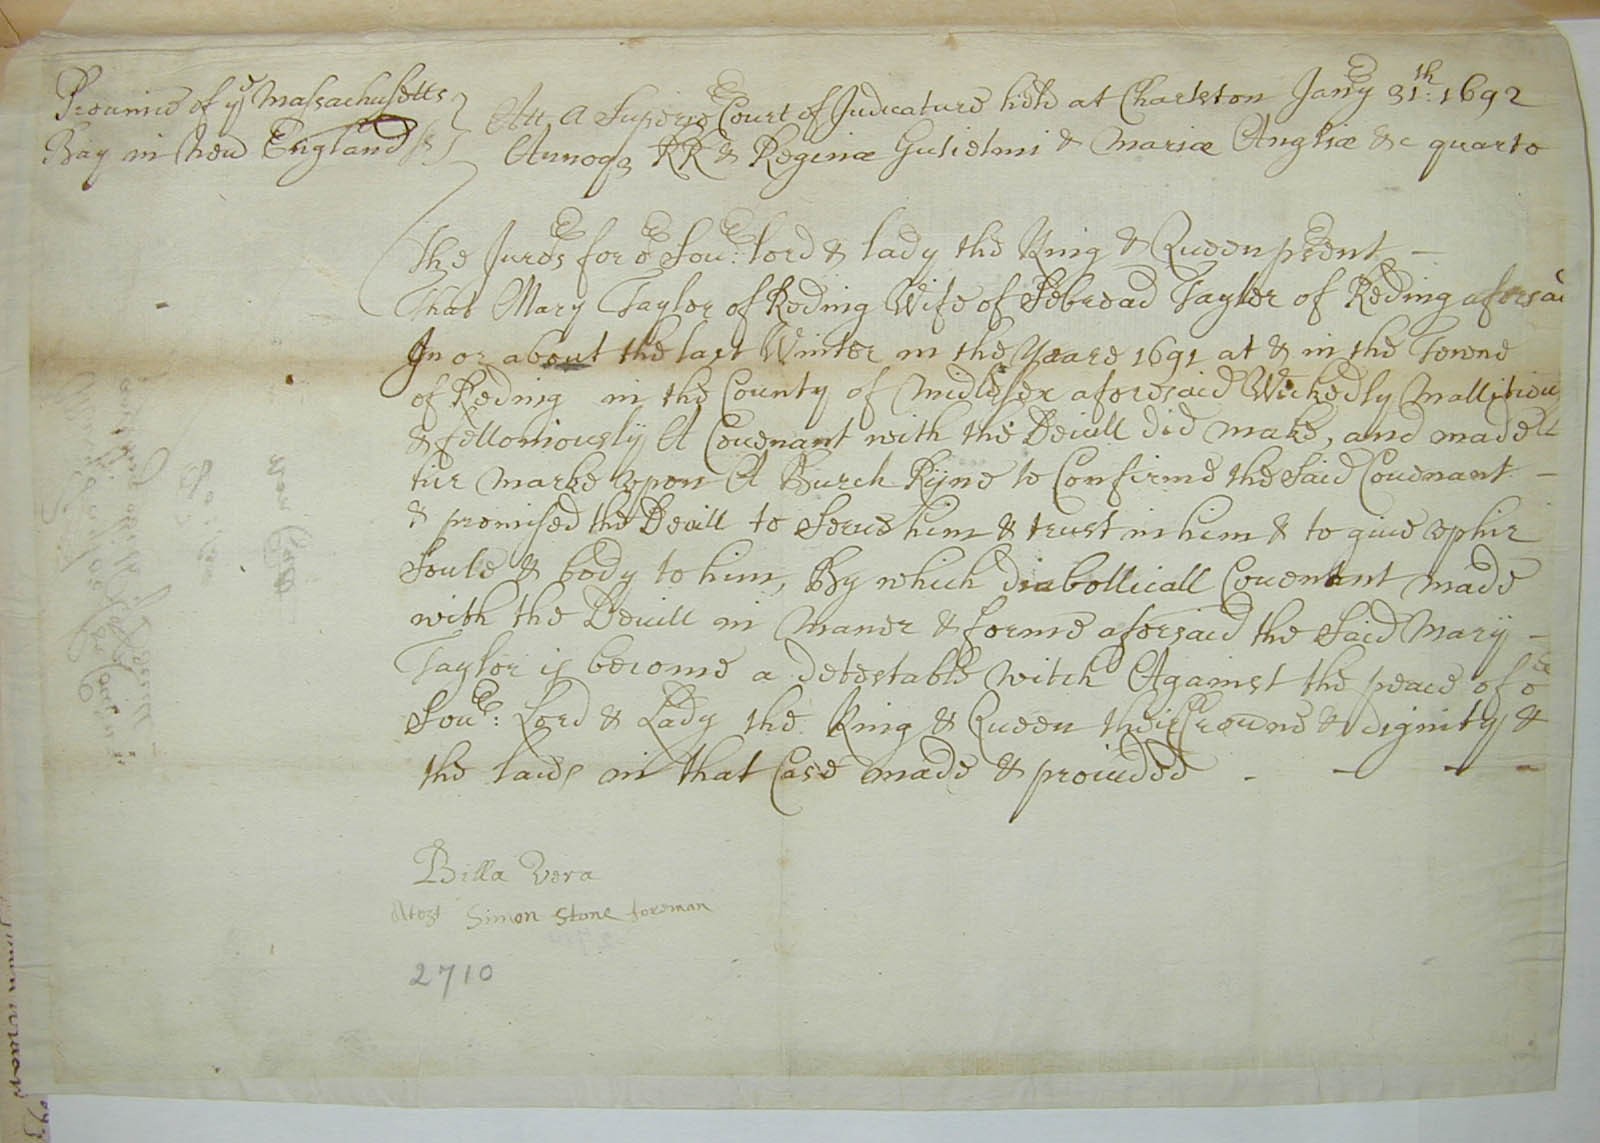 Prouince of yͤ Massachusetts
Bay in New England ss
Att A Superior Court of Judicature held at Charlston Janry 31th: 1692
Annoqe RRs & Reginæ Gulielmi & Mariæ Angliæ &c quarto
The Juros for or Sour: lord & lady the King & Queen psent —
That Mary Taylor of Reding Wife of Sebread Taylor of Reding aforsaid
In or about the last Winter in the Yeare 1691 at & in the Towne
of Reding in the County of Midlesex aforesaid Wickedly Mallitiously
& felloniously A Couenant with the Deuill did make, and made
hir marke vpon A Burch Ryne to Confirme the Said Couenant —
& promised the Deuill to Serue him & trust in him & to giue vp hir
Soule & body to him, By which diabollicall Couenant made
with the Deuill in Maner & forme aforsaid the Said Mary —
Taylor is become a detestable witch Against the peace of or
Sour: Lord & Lady the King & Queen their Crowne & dignity &
the laws in that Case made & prouided - - - -
Billa Vera
Atest Simon Stone foreman
2710